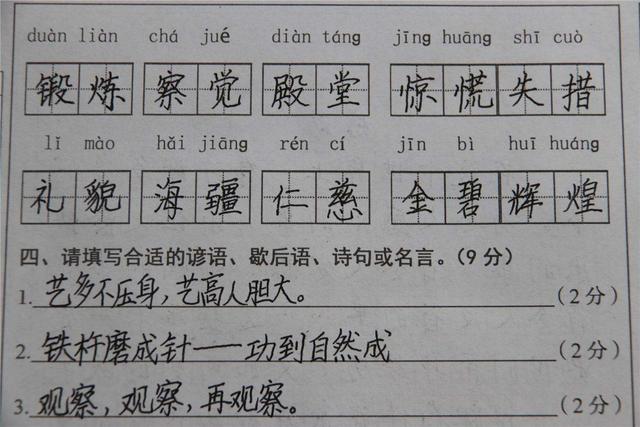 duàn liàn chá jué diàn táng jīng huāng shī cuò
锻炼 察觉 殿堂 惊慌失措
lǐ mào hǎi jiāng rén cí jīn bì huī huáng
礼貌 海疆 仁慈 金碧辉煌
四、请填写合适的谚语、歇后语、诗句或名言。(9分)
1. 艺多不压身,艺高人胆大。 (2分)
2. 铁杵磨成针——功到自然成 (2分)
3. 观察,观察,再观察。 (2分)